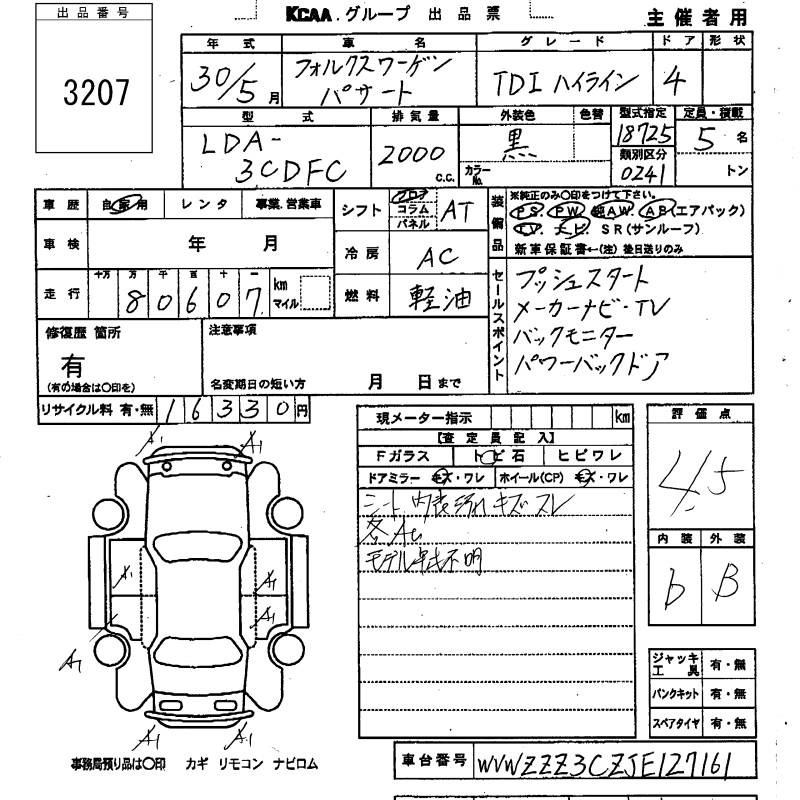 出品番号
3207
KCAA.グループ 出品票
主催者用
年式 車名 グレード ドア 形状
30/5月 フォルクスワーゲン パサート TDI ハイライン 4
型式 排気量 外装色 色替 型式指定 定員・積載
LDA-3CDFC 2000 C.C. 黒 カラーNo. 18725 5名
類別区分 0241 トン
車歴 自家用 レンタ 事業.営業車
シフト フロア コラム パネル AT
装備品 ※純正のみ〇印をつけて下さい。
PS. PW. 純AW. AB(エアバック)
TV. ナビ. SR(サンルーフ)
新車保証書←(注)後日送りのみ
車検 年 月
冷房 AC
走行 十万 万 千 百 十 一 km マイル
80607
燃料 軽油
セールスポイント
プッシュスタート
メーカーナビ・TV
バックモニター
パワーバックドア
修復歴 箇所
有
(有の場合は〇印を)
注意事項
名変期日の短い方 月 日まで
リサイクル料 有・無 16330円
現メーター指示 km
【査定員記入】
Fガラス トビ石 ヒビワレ
ドアミラー キズ・ワレ ホイール(CP) キズ・ワレ
シート 内装汚れ キズ スレ
各A1
モデル年式不明
評価点
4.5
内装 外装
b B
A1 A1
A1 A1
A1
A1
A1 A1
ジャッキ工具 有・無
パンクキット 有・無
スペアタイヤ 有・無
事務局預り品は〇印 カギ リモコン ナビロム
車台番号 WVWZZZ3CZJE127161